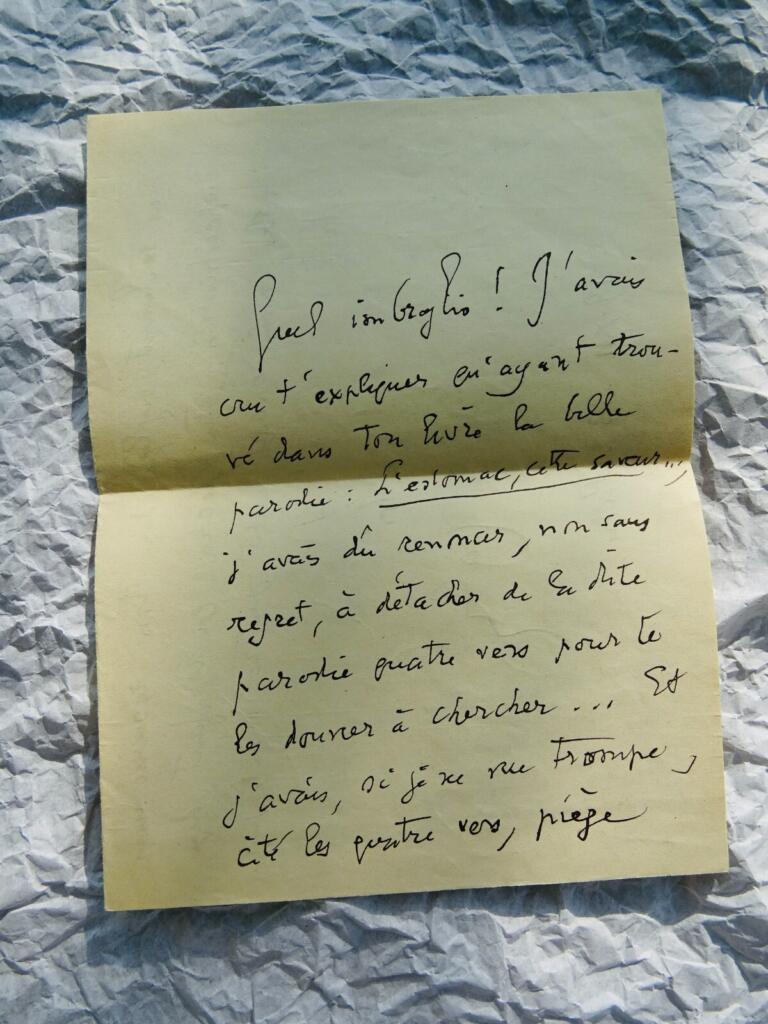 Quel imbroglio ! J'avais
cru t'expliquer qu'ayant trou-
vé dans ton livre la belle
parodie : L'estomac, cette saveur...,
j'avais dû renoncer, non sans
regret, à détacher de la dite
parodie quatre vers pour te
les donner à chercher... Et
j'avais, si je ne me trompe,
cité les quatre vers, piège